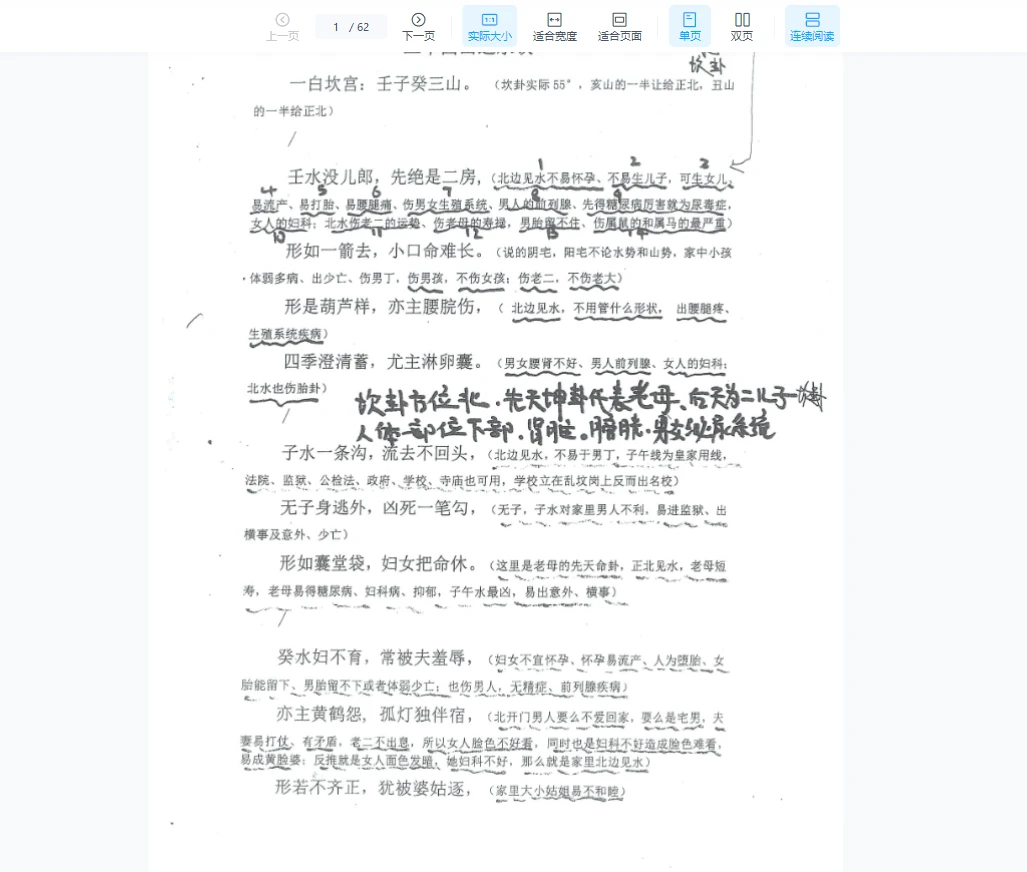 上一页
1 / 62
下一页
实际大小
适合宽度
适合页面
单页
双页
连续阅读
坎卦
一白坎宫：壬子癸三山。（坎卦实际 55°，亥山的一半让给正北，丑山
的一半给正北）
1 2 3
壬水没儿郎，先绝是二房，（北边见水不易怀孕、不易生儿子，可生女儿、
4 5 6 7 8 9
易流产、易打胎、易腰腿痛、伤男女生殖系统、男人的前列腺、先得糖尿病厉害就为尿毒症，
女人的妇科；北水伤老二的运势、伤老母的寿禄，男胎留不住，伤属鼠的和属马的最严重）
10 11 12 13 14
形如一箭去，小口命难长。（说的阴宅，阳宅不论水势和山势，家中小孩
体弱多病、出少亡、伤男丁，伤男孩，不伤女孩；伤老二，不伤老大）
形是葫芦样，亦主腰脘伤，（北边见水，不用管什么形状，出腰腿疼、
生殖系统疾病）
四季澄清蓄，尤主淋卵囊。（男女腰肾不好、男人前列腺、女人的妇科；
北水也伤胎卦）
坎卦方位北．先天坤卦代表老母、后天为二儿子一坎卦
人体一部位下部．肾脏。膀胱．男女泌尿系统
子水一条沟，流去不回头，（北边见水，不易于男丁，子午线为皇家用线，
法院、监狱、公检法、政府、学校、寺庙也可用，学校立在乱坟岗上反而出名校）
无子身逃外，凶死一笔勾，（无子，子水对家里男人不利，易进监狱、出
横事及意外、少亡）
形如囊堂袋，妇女把命休。（这里是老母的先天命卦，正北见水，老母短
寿，老母易得糖尿病、妇科病、抑郁，子午水最凶，易出意外、横事）
癸水妇不育，常被夫羞辱，（妇女不宜怀孕、怀孕易流产、人为堕胎、女
胎能留下、男胎留不下或者体弱少亡；也伤男人，无精症、前列腺疾病）
亦主黄鹤怨，孤灯独伴宿，（北开门男人要么不爱回家，要么是宅男，夫
妻易打仗，有矛盾，老二不出息，所以女人脸色不好看，同时也是妇科不好造成脸色难看，
易成黄脸婆；反推就是女人面色发暗，她妇科不好，那么就是家里北边见水）
形若不齐正，犹被婆姑逐，（家里大小姑姐易不和睦）